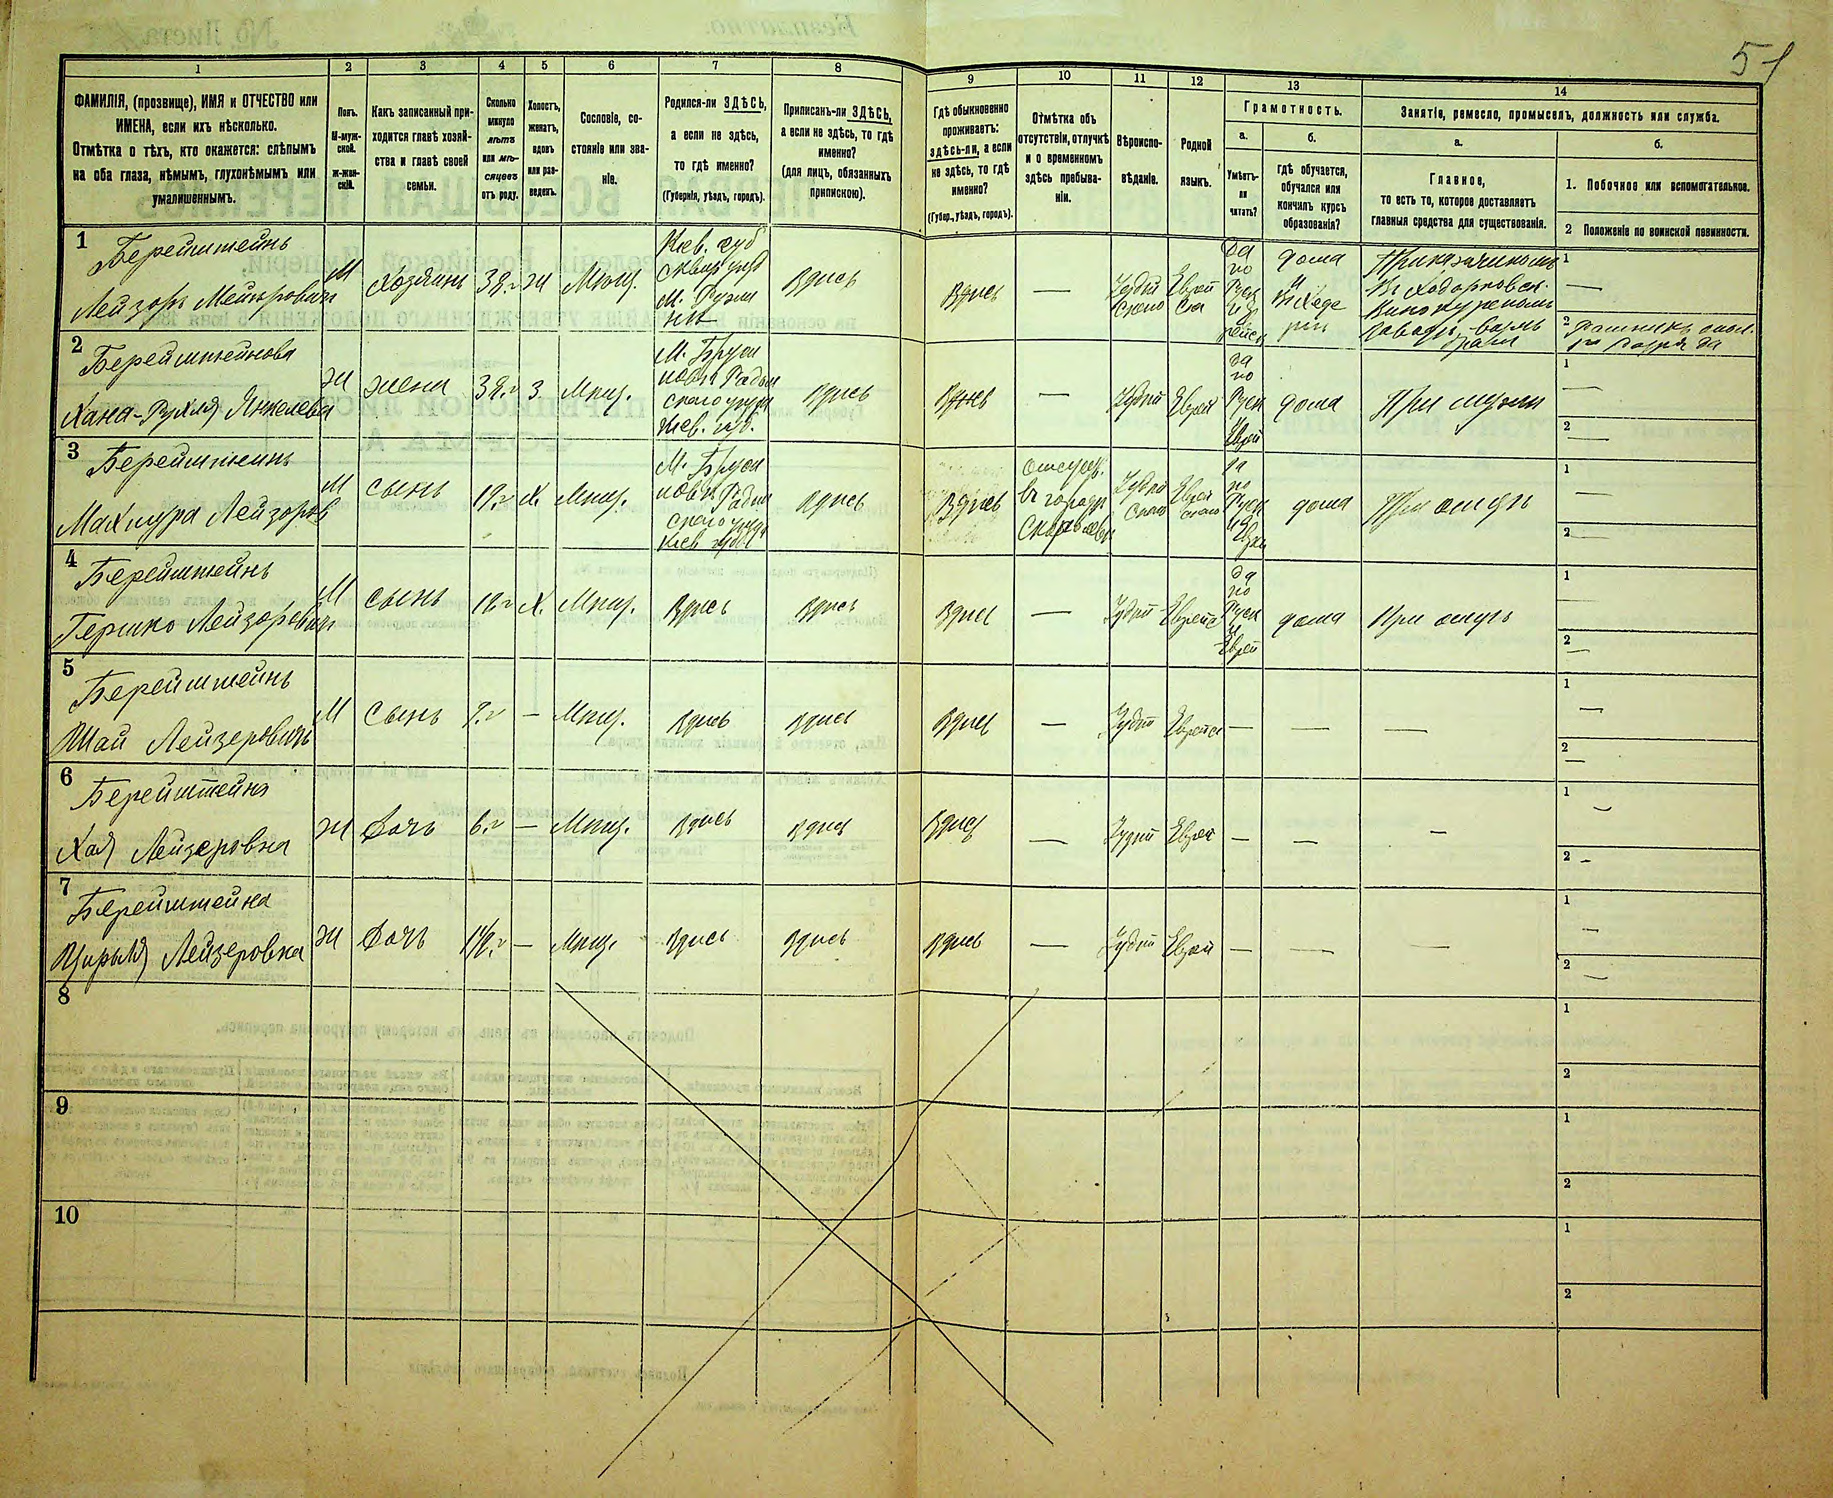 51
1 2 3 4 5 6 7 8 9 10 11 12 13 14
ФАМИЛІЯ, (прозвище), ИМЯ и ОТЧЕСТВО или
ИМЕНА, если ихъ нѣсколько.
Отмѣтка о тѣхъ, кто окажется: слѣпымъ
на оба глаза, нѣмымъ, глухонѣмымъ или
умалишеннымъ.
Полъ.
М-муж-
ской.
ж-жен-
скій.
Какъ записанный при-
ходится главѣ хозяй-
ства и главѣ своей
семьи.
Сколько
минуло
лѣтъ
или мѣ-
сяцевъ
отъ роду.
Холостъ,
женатъ,
вдовъ
или раз-
веденъ.
Сословіе, со-
стояніе или зва-
ніе.
Родился-ли ЗДѢСЬ,
а если не здѣсь,
то гдѣ именно?
(Губернія, уѣздъ, городъ).
Приписанъ-ли ЗДѢСЬ,
а если не здѣсь, то гдѣ
именно?
(для лицъ, обязанныхъ
припискою).
Гдѣ обыкновенно
проживаетъ:
здѣсь-ли, а если
не здѣсь, то гдѣ
именно?
(Губер., уѣздъ, городъ).
Отмѣтка объ
отсутствіи, отлучкѣ
и о временномъ
здѣсь пребыва-
ніи.
Вѣроиспо-
вѣданіе.
Родной
языкъ.
Грамотность.
а.
Умѣетъ-
ли
читать?
б.
гдѣ обучается,
обучался или
кончилъ курсъ
образованія?
Занятіе, ремесло, промыселъ, должность или служба.
а.
Главное,
то есть то, которое доставляетъ
главныя средства для существованія.
б.
1. Побочное или вспомогательное.
2 Положеніе по воинской повинности.
1
Берейштейнъ
Лейзоръ Мейнровичъ
М
Хозяинъ
38 г.
ж
Мѣщ.
Кіев. губ
Сквир уезд
м. Ружи
нъ
Здѣсь
Здѣсь
—
Іудей
ского
Еврей
ски
да
по
Руск
и Ев
рейск
дома
и
въ Хеде
ри
Приказчикомъ
въ Ходорковск.
Винокуренномъ
заводѣ
1
—
2
2
Берейштейнова
Хана-Рухля Янкелева
Ж
жена
38 г
З
Мѣщ.
М. Бруси
ловъ Радом
скаго уезда
Кіев. губ.
Здѣсь
Здѣсь
—
Іудей
Еврей
да
по
Руск
Еврей
дома
При мужи
1
—
2
—
3
Берейштейнъ
Махшура Лейзоров
М
сынъ
19 г
Х.
Мѣщ.
М. Бруси
ловъ Радом
скаго уезда
Кіев губ
Здѣсь
Здѣсь
отсут.
въ городе
Іудей
ского
Еврей
ского
да
по
Руск
дома
При отцѣ
1
—
2
—
4
Берейштейнъ
Гершко Лейзоровичъ
М
сынъ
12 г
Х.
Мѣщ.
Здѣсь
Здѣсь
Здѣсь
—
Іудей
Еврейс
да
по
Руск
и
Еврей
дома
При отцѣ
1
—
2
—
5
Берейштейнъ
Шай Лейзеровичъ
М
Сынъ
9. г
—
Мѣщ.
Здѣсь
Здѣсь
Здѣсь
—
Іудей
Еврейс
—
—
—
1
—
2
—
6
Берейштейнъ
Хая Лейзеровна
Ж
Дочь
6. г
—
Мѣщ.
Здѣсь
Здѣсь
Здѣсь
—
Іудей
Еврей
—
—
—
1
—
2
—
7
Берейштейна
Цирыля Лейзеровна
Ж
Дочь
1½ г
—
Мѣщ.
Здѣсь
Здѣсь
Здѣсь
—
Іудей
Еврей
—
—
—
1
—
2
—
8
1
2
9
1
2
10
1
2